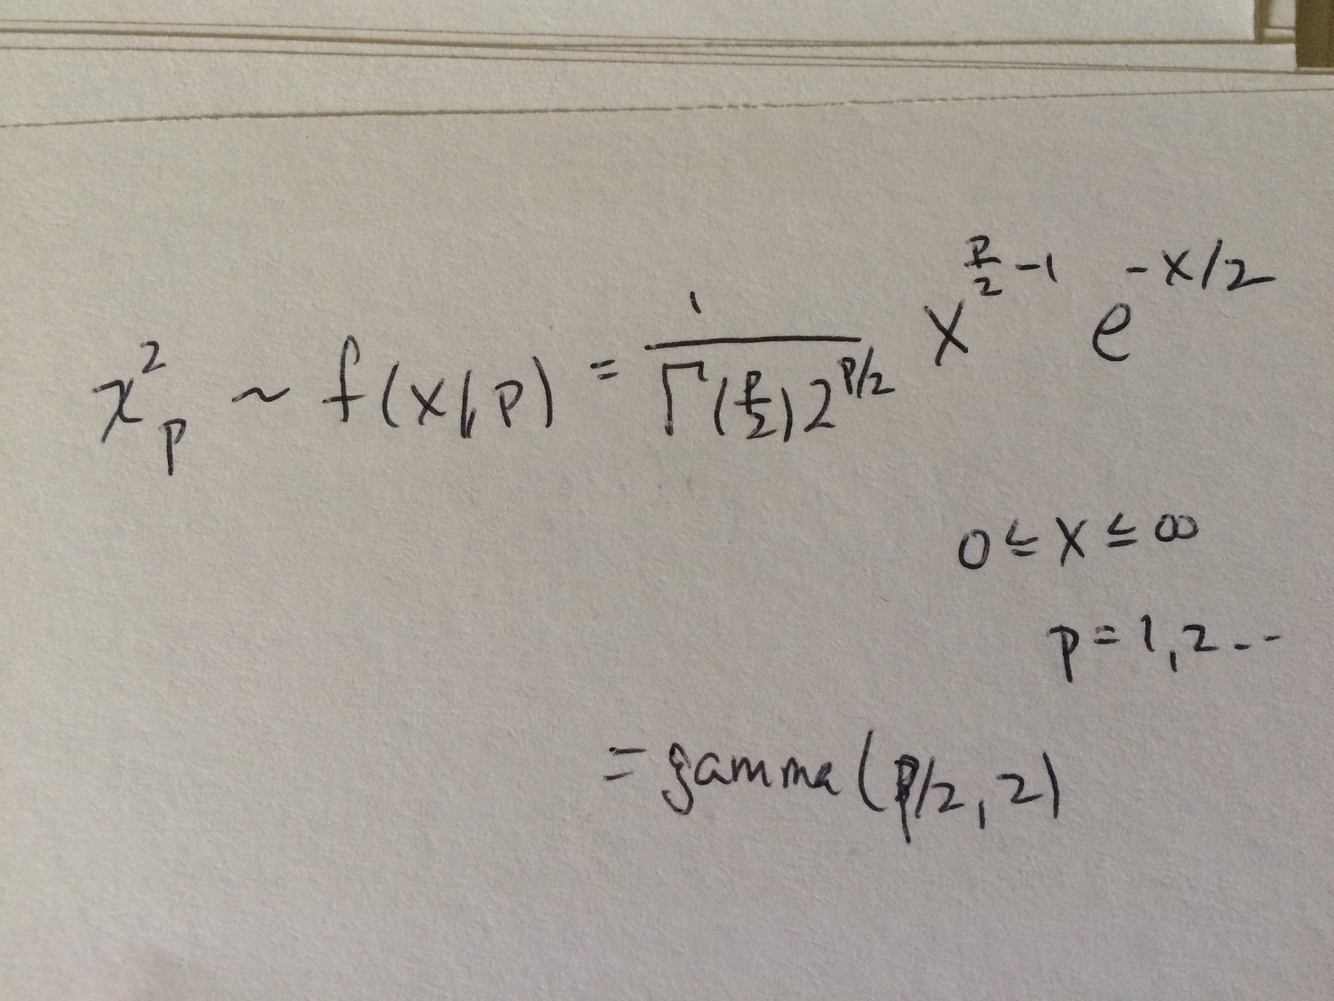 χ²ₚ ~ f(x|p) = 1/(Γ(p/2) 2^{p/2}) x^{p/2 - 1} e^{-x/2}
0 ≤ x ≤ ∞
p = 1, 2 - -
= gamma (p/2, 2)